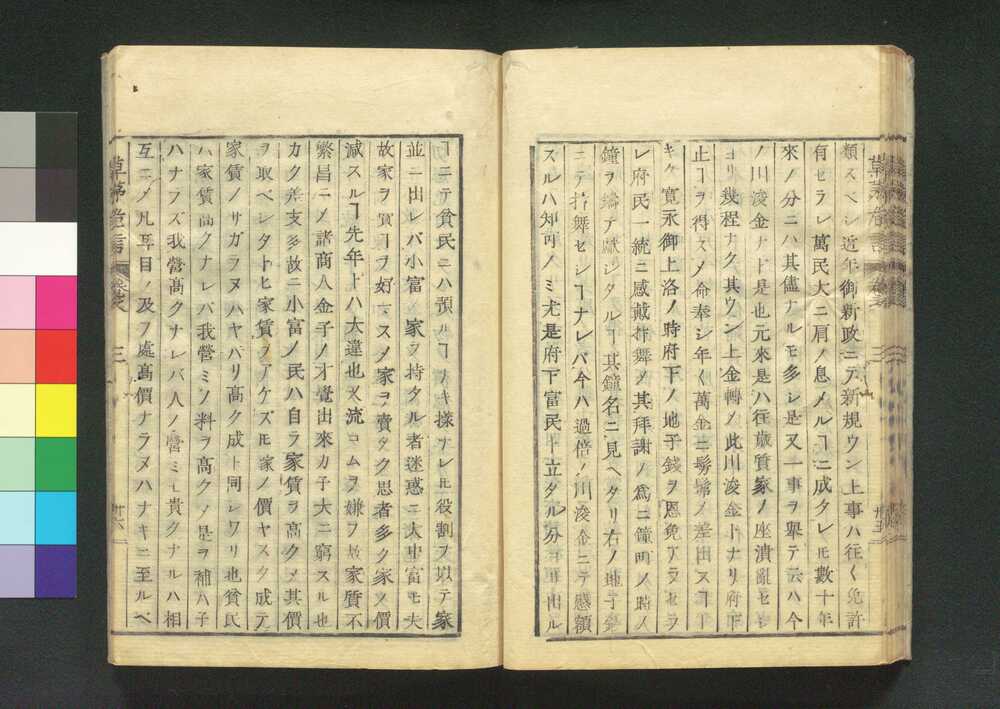 類スベシ近年御新政ニテ新規ウン上事ハ往く免許
有セラレ萬民大ニ肩ノ息メルヿニ成タレ𪜈數十年
來ノ分ニハ其儘ナルモ多シ是又一事ヲ舉テ云ハ今
ノ川浚金ナト是也元來是ハ往歳質家ノ座潰亂セシ
ヨリ幾程ナク其ウン上金轉ノ此川浚金トナリ府下
止ヿヲ得スメ命奉シ年く萬金ニ髣髴ノ差出スヿ
キケ寛永御上洛ノ時府下ノ地子錢ヲ恩免アラセラ
レ府民一統ニ感戴抃舞ノ其拜謝ノ爲ニ鐘明ノ時ノ
鐘ヲ鑄テ獻シタルヿ其鐘名ニ見ヘタリ右ノ地子錢
ニテ抃舞セシヿナレバ今ハ過倍ノ川浚金ニテ慼額
スルハ知可ノミ尤是府下富民ト立タル分ヨリ出ル
ヿニテ貧民ニハ預ルヿノキ樣ナレ𪜈役割ヲ以テ家
並ニ出レバ小富ノ家ヲ持タル者迷惑ニ大中富モ大
故家ヲ買ヿヲ好マスメ家ヲ賣タク思者多ク家ノ價
減スルヿ先年トハ大違也又流コムヲ嫌フ故家質不
繁昌ニノ諸商人金子ノ才覺出來カ子大ニ窮スル也
カク差支多故ニ小富ノ民ハ自ラ家賃ヲ高クメ其價
ヲ取ベシタトヒ家賃ヲアケズ𪜈家ノ價ヤスク成テ
家賃ノサガラヌハヤハリ高ク成ト同シワリ也貧民
ハ家賃高クナレバ我營ミノ料ヲ高クノ是ヲ補ハ子
ハナラズ我營高クナレバ人ノ營ミモ貴クナルハ相
互ニメ凡耳目ノ及フ處高價ナラヌハナキニ至ルベ
草茅危言
三
卄六